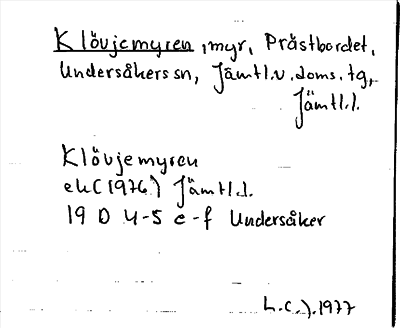 Klövjemyren, myr, Prästbordet,
Undersåkers sn, Jämtl.v.doms.tg,
Jämtl.l.
Klövjemyren
ek (1976) Jämtl.l.
19 D 4-5 e-f Undersåker
L.C.J. 1977